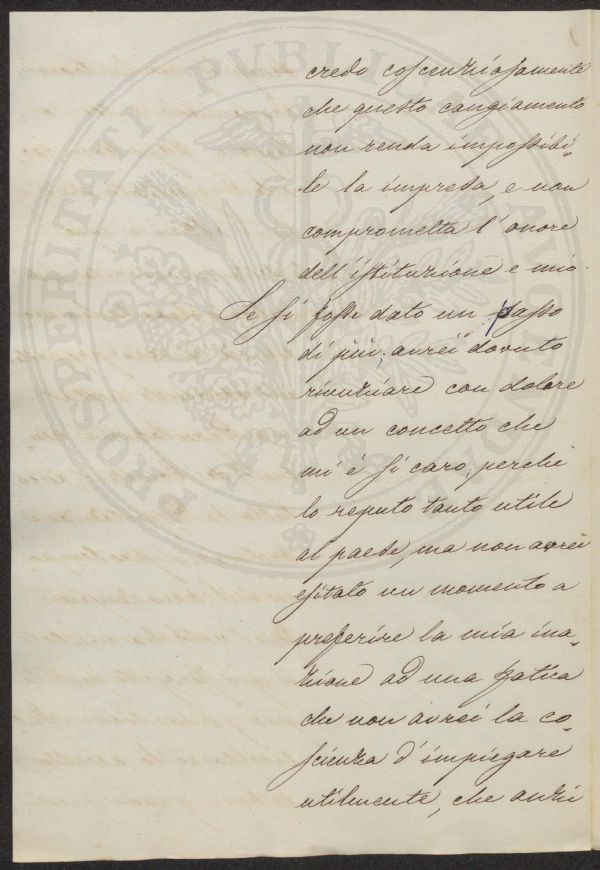 PROSPERITATI PUBLICAE AUGENDAE
credo coscenziosamente
che questo cangiamento
non renda impossibi-
le la impresa, e non
comprometta l'onore
dell'istituzione e mio.
Se si fosse dato un passo
di più, avrei dovuto
rinunziare con dolore
ad un concetto che
mi è sì caro, perchè
lo reputo tanto utile
al paese, ma non avrei
esitato un momento a
preferire la mia ina-
zione ad una fatica
che non avrei la co-
scienza d'impiegare
utilmente, che anzi